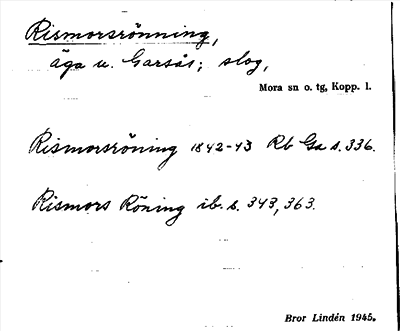 Rismorsrönning,
äga u. Garsås; slog,
Mora sn o. tg, Kopp. l.
Rismorsröning 1842-43 Rb Ga s. 336.
Rismors Röning ib. s. 343, 363.
Bror Lindén 1945.